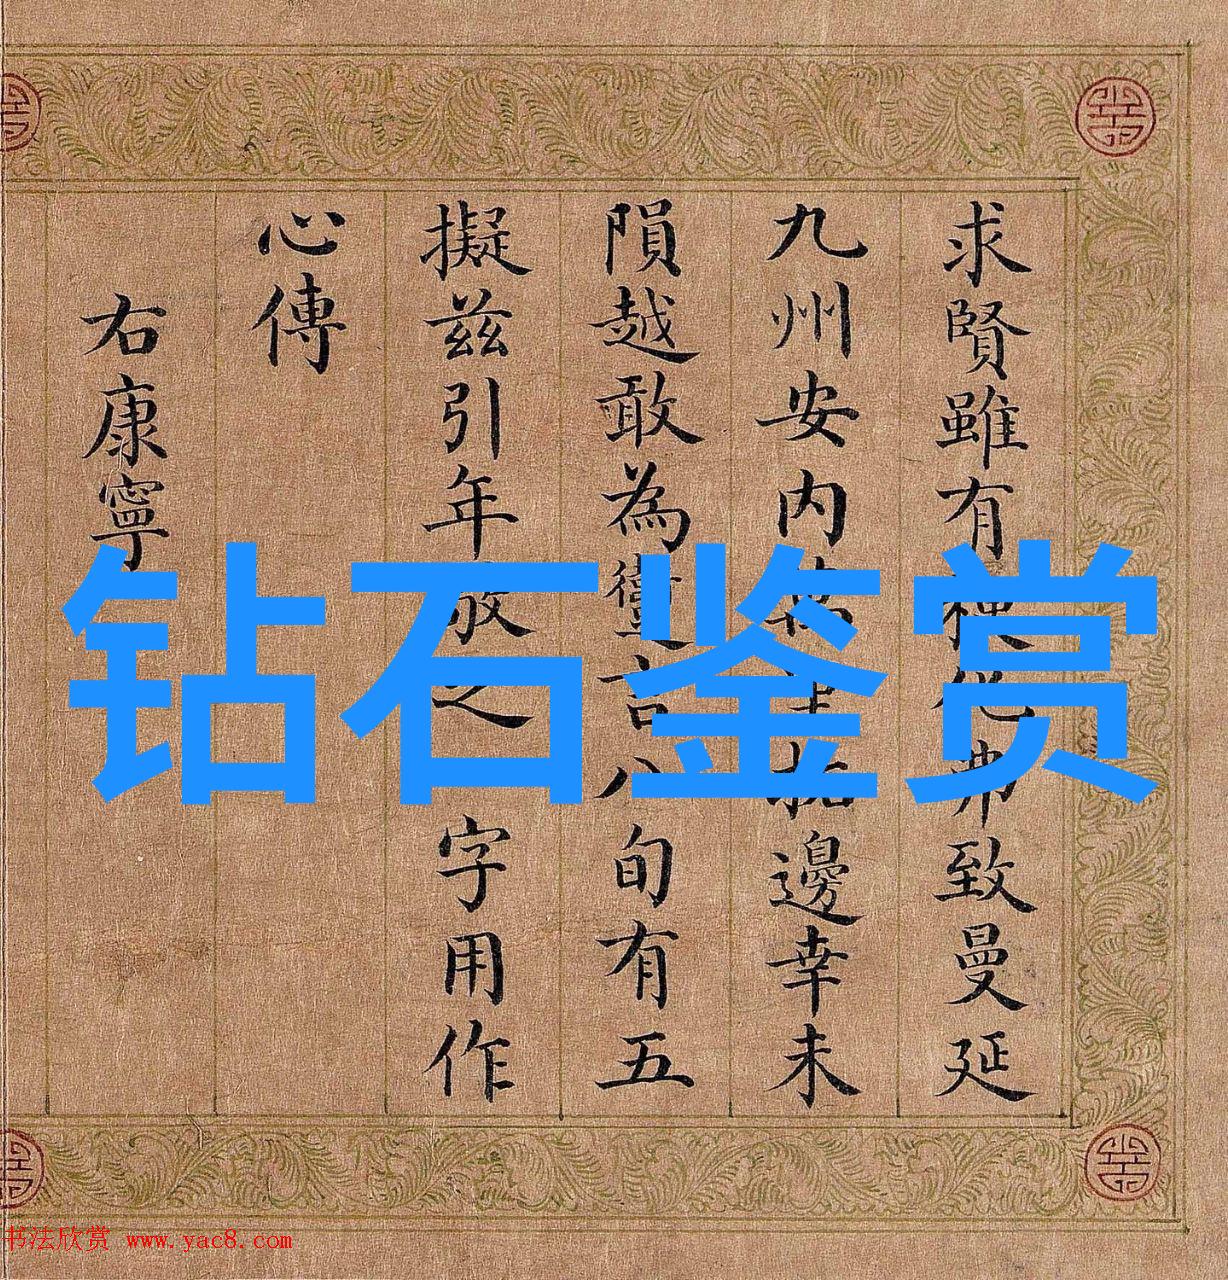 求賢雖有他弗致曼延
九州安内邊幸未
隕越敢為言八旬有五
擬兹引年之字用作
心傳
右康寧
钻石鉴赏
书法欣赏 www.yac8.com